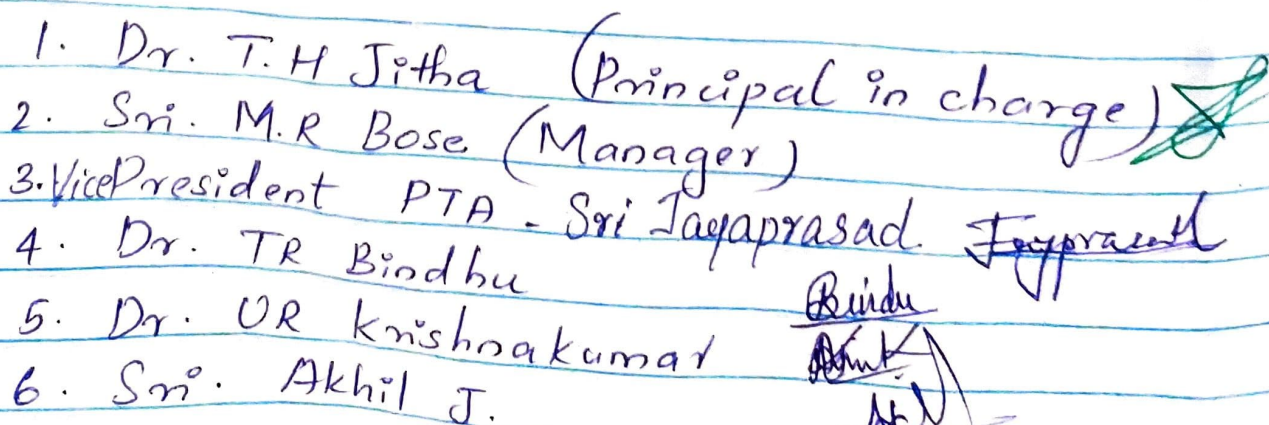 1. Dr. T.H Jitha (Principal in charge)
2. Sri. M.R Bose (Manager)
3. Vice President PTA - Sri Jayaprasad.
4. Dr. TR Bindhu Bindu
5. Dr. UR Krishnakumar
6. Sri. Akhil J.